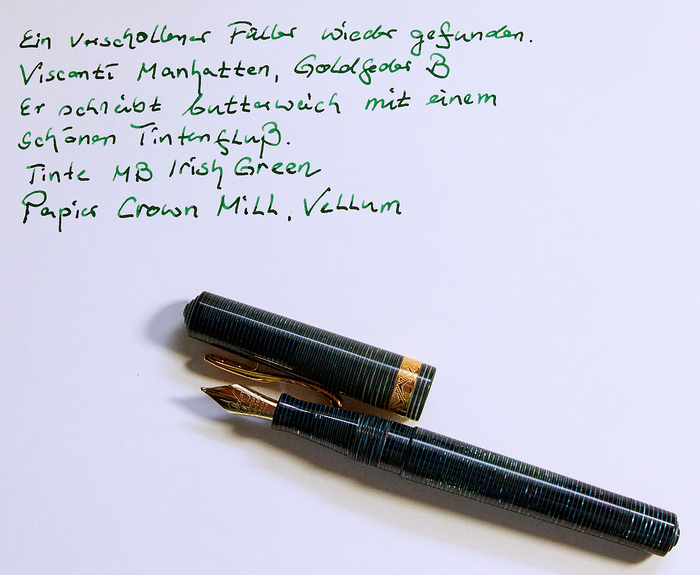 Ein verschollener Füller wieder gefunden.
Visconti Manhatten, Goldfeder B
Er schreibt butterweich mit einem
schönen Tintenfluß.
Tinte MB Irish Green
Papier Crown Mill, Vellum